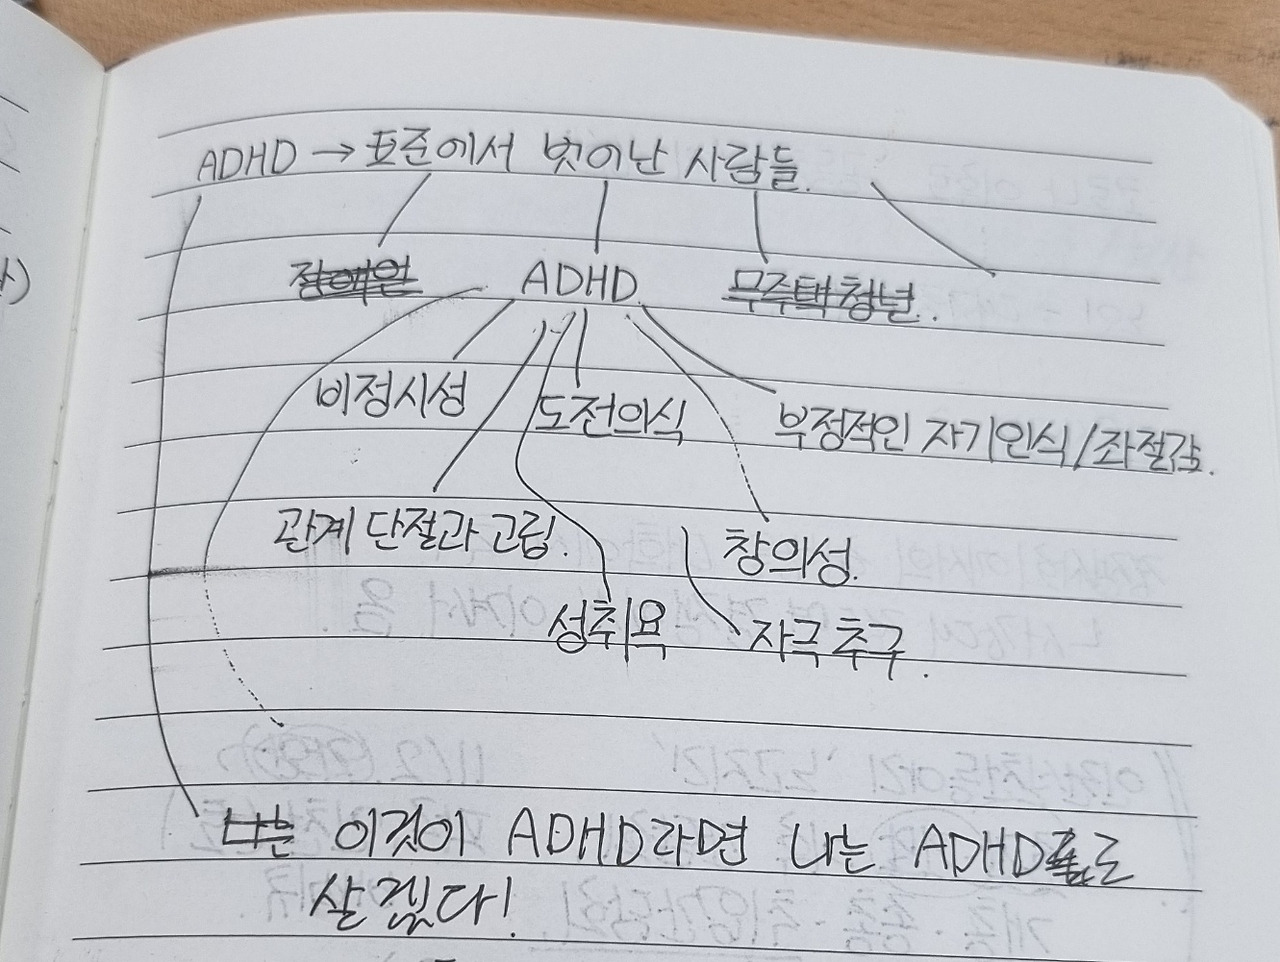 ADHD → 표준에서 벗어난 사람들.
ADHD 무주택청년.
비정시성 도전의식 부정적인 자기인식/좌절감.
관계 단절과 고립. 창의성.
성취욕 자극 추구.
나는 이것이 ADHD라면 나는 ADHD로
살겠다!